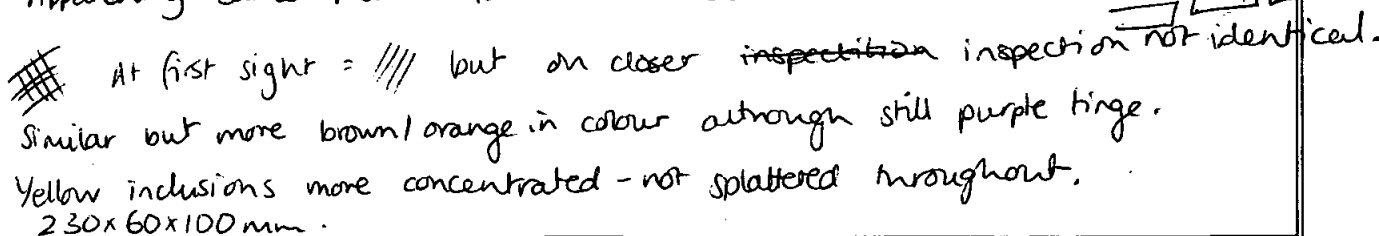 At first sight = //// but on closer inspectition inspection not identical.
Similar but more brown/orange in colour although still purple tinge.
Yellow inclusions more concentrated - not splattered throughout.
230x60x100mm.